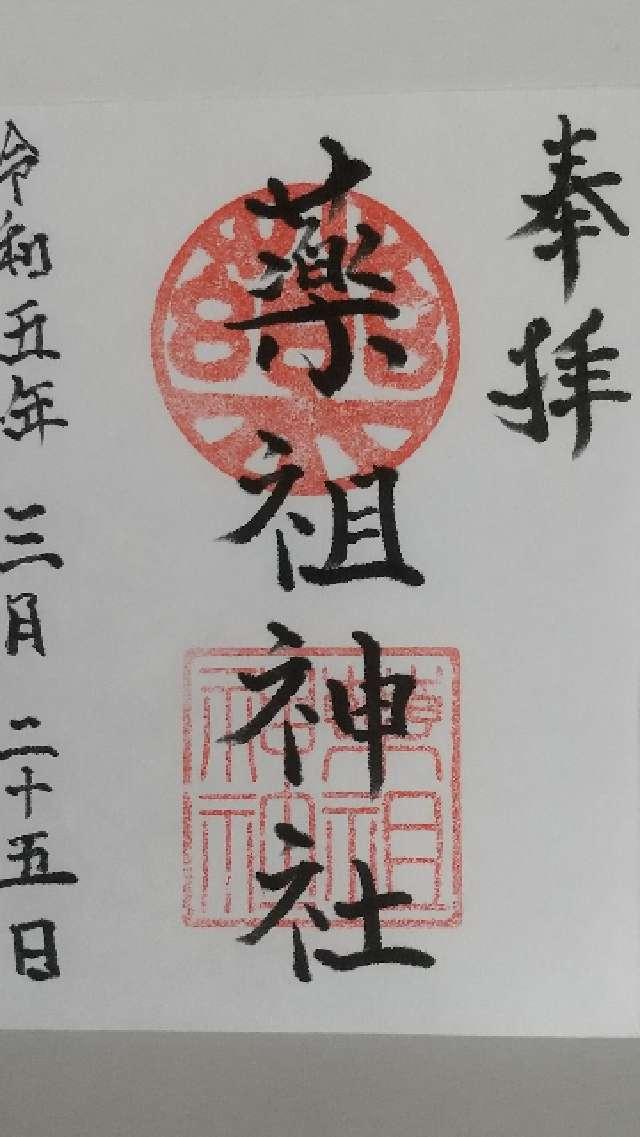 奉拝
薬祖神社
令和五年三月二十五日